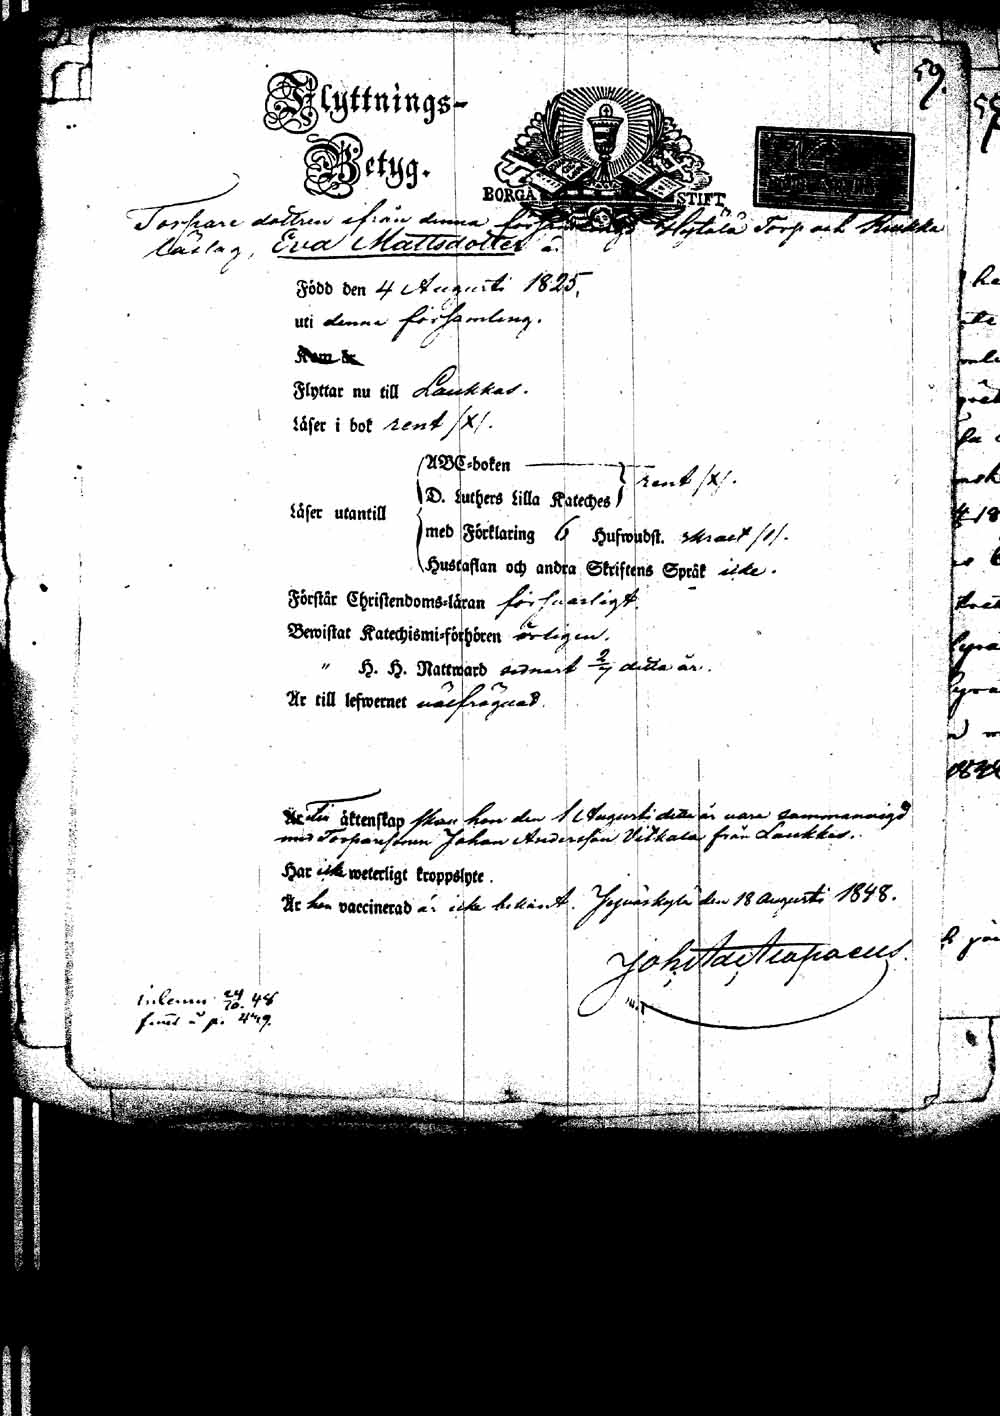 59.
Flyttnings-
Betyg.
BORGÅ STIFT
Torpare dottren ifrån denna församlings Hytölä Torp och Keukka
läslag, Eva Mattsdotter är
Född den 4 Augusti 1825,
uti denna församling.
Kom år
Flyttar nu till Laukkas.
Läser i bok rent /x/.
ABC-boken
D. Luthers Lilla Kateches rent /x/.
Läser utantill
med Förklaring 6 Hufwudst. svart /1/.
Hustaflan och andra Skriftens Språk icke.
Förstår Christendoms-läran försvarligt.
Bewistat Katechismi-förhören årligen.
" H. H. Nattward sednast 2/7 detta år.
Är till lefwernet välfrägdad.
Till äktenskap skall hon den 1 Augusti detta år vara sammanvigd
med Torparesonen Johan Andersson Vitkala från Laukkas.
Har icke weterligt kroppslyte.
Är hon vaccinerad är icke bekant. Jyväskylä den 18 Augusti 1848.
24/10. 48
p. 449.